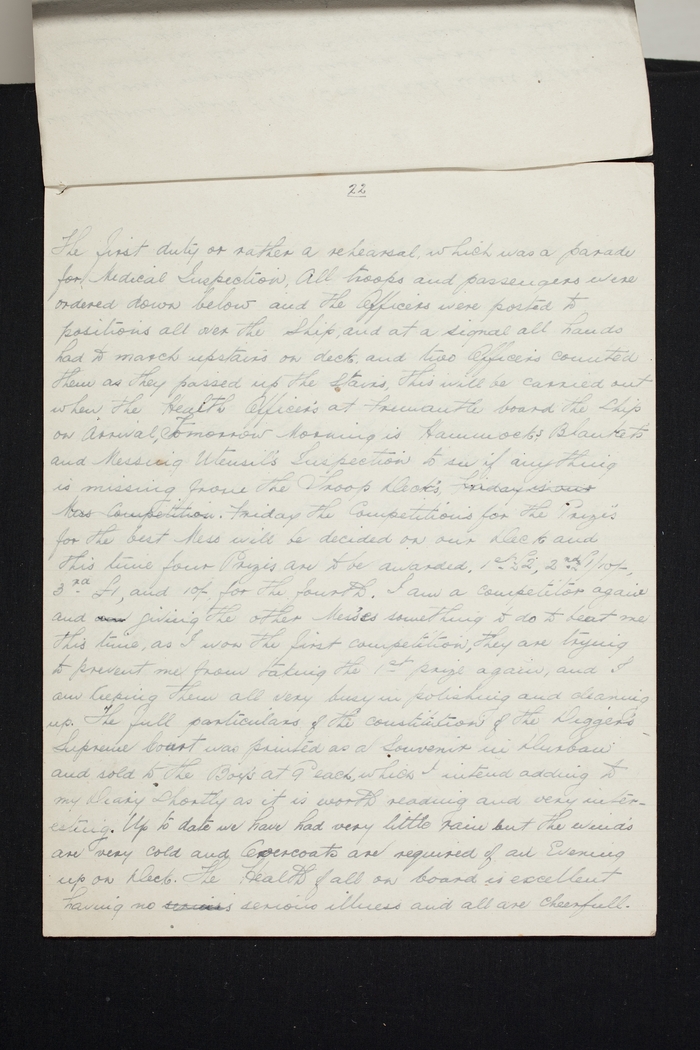 22
The first duty or rather a rehearsal, which was a parade
for Medical Inspection, All troops and passengers were
ordered down below and the Officers were posted to
positions all over the Ship, and at a signal all hands
had to march upstairs on deck, and two Officers counted
them as they passed up the Stairs, this will be carried out
when the Health Officer's at Fremantle board the Ship
on Arrival, Tomorrow Morning is Hammocks Blankets
and Messing Utensil's Inspection to see if anything
is missing from the Troop Deck's, Friday is our
Mess Competition. Friday the Competitions for the Prize's
for the best Mess will be decided on our Deck and
this time four Prizes are to be awarded. 1st £2, 2nd £1/10/-,
3rd £1, and 10/- for the fourth. I am a competitor again
and giving the other Messes something to do to beat me
this time, as I won the first competition, they are trying
to prevent me from taking the 1st prize again, and I
am keeping them all very busy in polishing and cleaning
up. The full particulars of the constitution of the Digger's
Supreme Court was printed as a Souvenir in Durban
and sold to the Boys at 9d each, which I intend adding to
my Diary Shortly as it is worth reading and very inter-
esting. Up to date we have had very little rain but the wind's
are very cold and Overcoats are required of an Evening
up on Deck. The Health of all on board is excellent
having no serious illness and all are cheerfull.